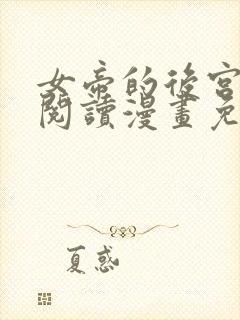 女帝的後宮
閱讀漫畫免
夏惑